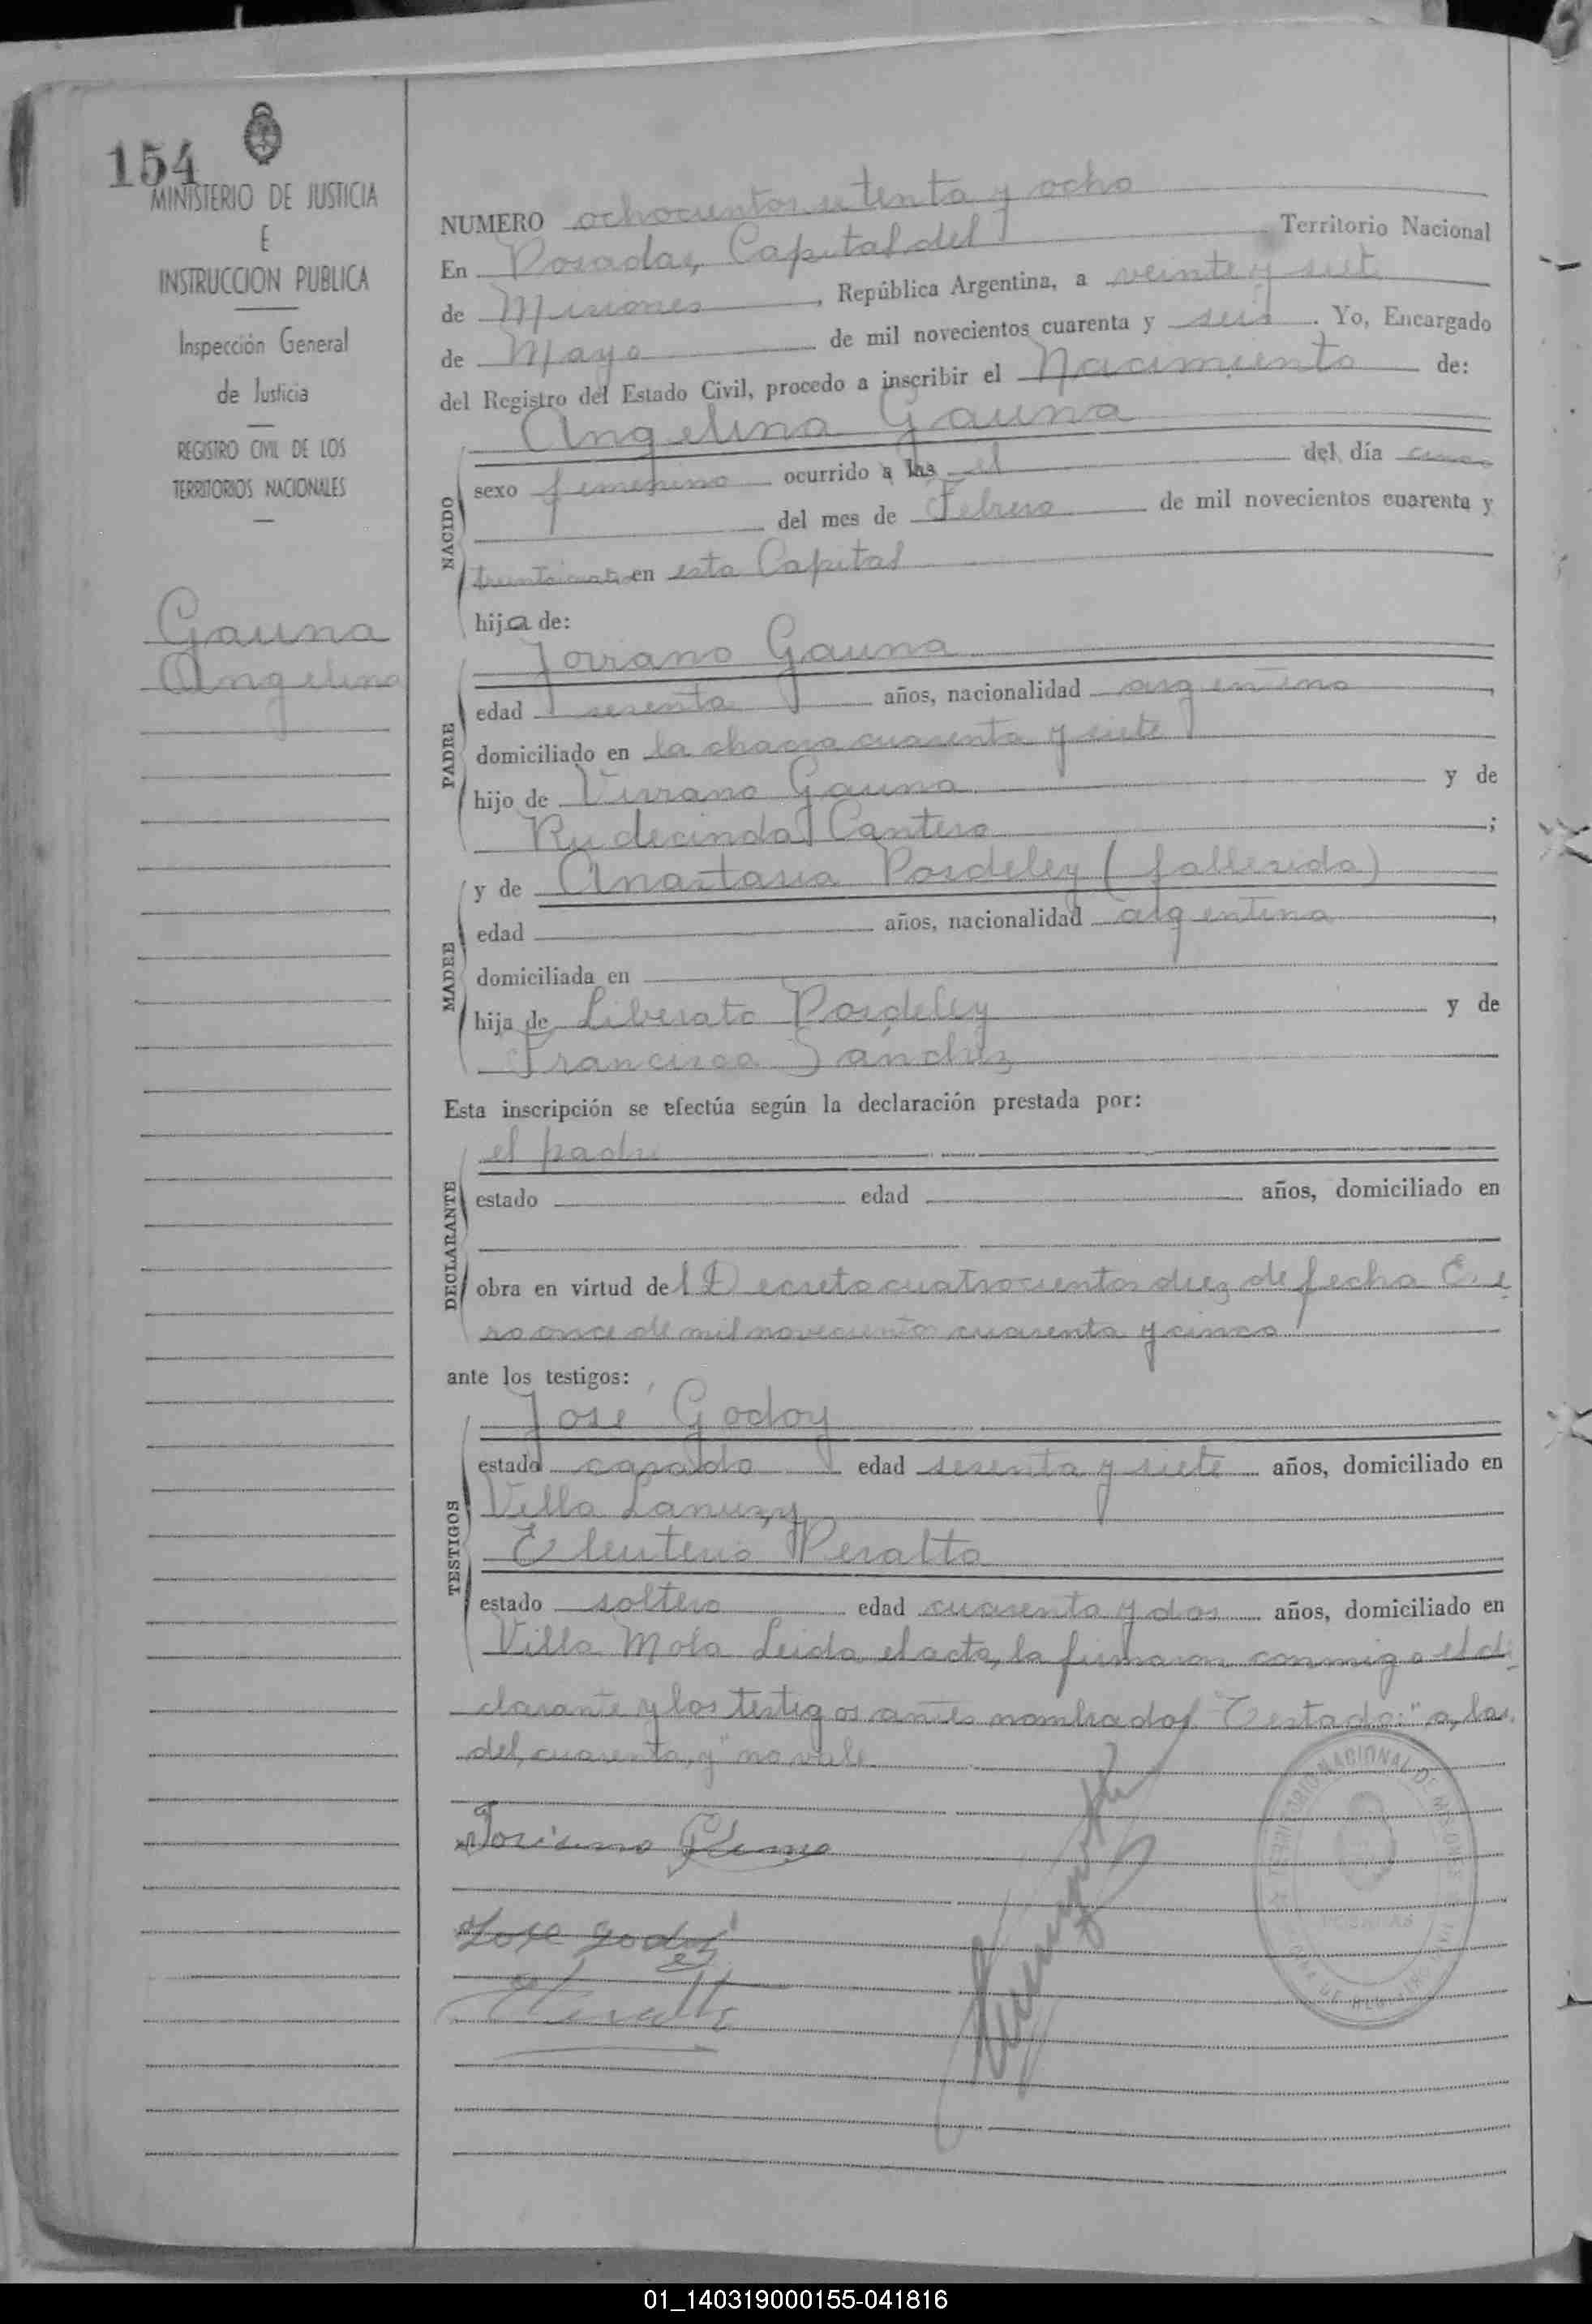 154
MINISTERIO DE JUSTICIA
E
INSTRUCCION PUBLICA
Inspección General
de Justicia
REGISTRO CIVIL DE LOS
TERRITORIOS NACIONALES
Gauna
Angelina
NUMERO ochocientos setenta y ocho
En Posadas, Capital del Territorio Nacional
de Misiones, República Argentina, a veinte y siete
de Mayo de mil novecientos cuarenta y seis. Yo, Encargado
del Registro del Estado Civil, procedo a inscribir el Nacimiento de:
Angelina Gauna
NACIDO
sexo femenino ocurrido a las el del día cinco
del mes de Febrero de mil novecientos cuarenta y
en esta Capital
hija de:
PADRE
Gauna
edad sesenta años, nacionalidad argentino,
domiciliado en la chacra cuarenta y siete
hijo de Gauna y de
Rudecinda Cantero;
MADRE
y de Anastasia Posdeley (fallecida)
edad años, nacionalidad argentina,
domiciliada en
hija de Liberato Posdeley y de
Francisca Sánchez
Esta inscripción se efectúa según la declaración prestada por:
DECLARANTE
el padre
estado edad años, domiciliado en
obra en virtud del Decreto cuatrocientos diez de fecha Ene
ro once de mil novecientos cuarenta y cinco
ante los testigos:
TESTIGOS
José Godoy
estado casado edad sesenta y siete años, domiciliado en
Villa Lanusy
Eleuterio Peralta
estado soltero edad cuarenta y dos años, domiciliado en
Villa Mola Leida el acta, la firmaron conmigo el de
clarante y los testigos antes nombrados Testado: "a, las,
del, cuarenta, y" no vale
Jose Godoy
TERRITORIO NACIONAL DE MISIONES
POSADAS
01_140319000155-041816